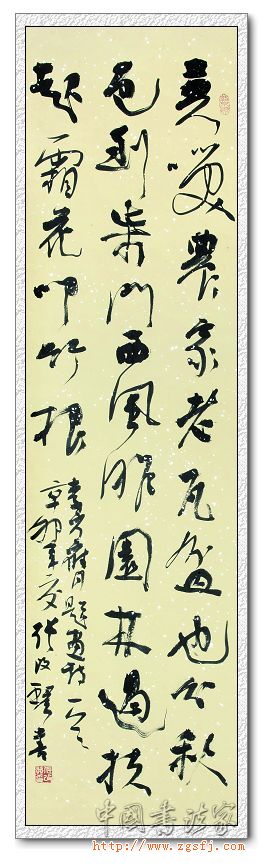 莫笑農家老瓦盆也分秋
色到柴門西風昨園林過扶
起霜花叩竹根
題畫詩
辛卯年夏張改琴書
中國書法家
http://www.zgsfj.com